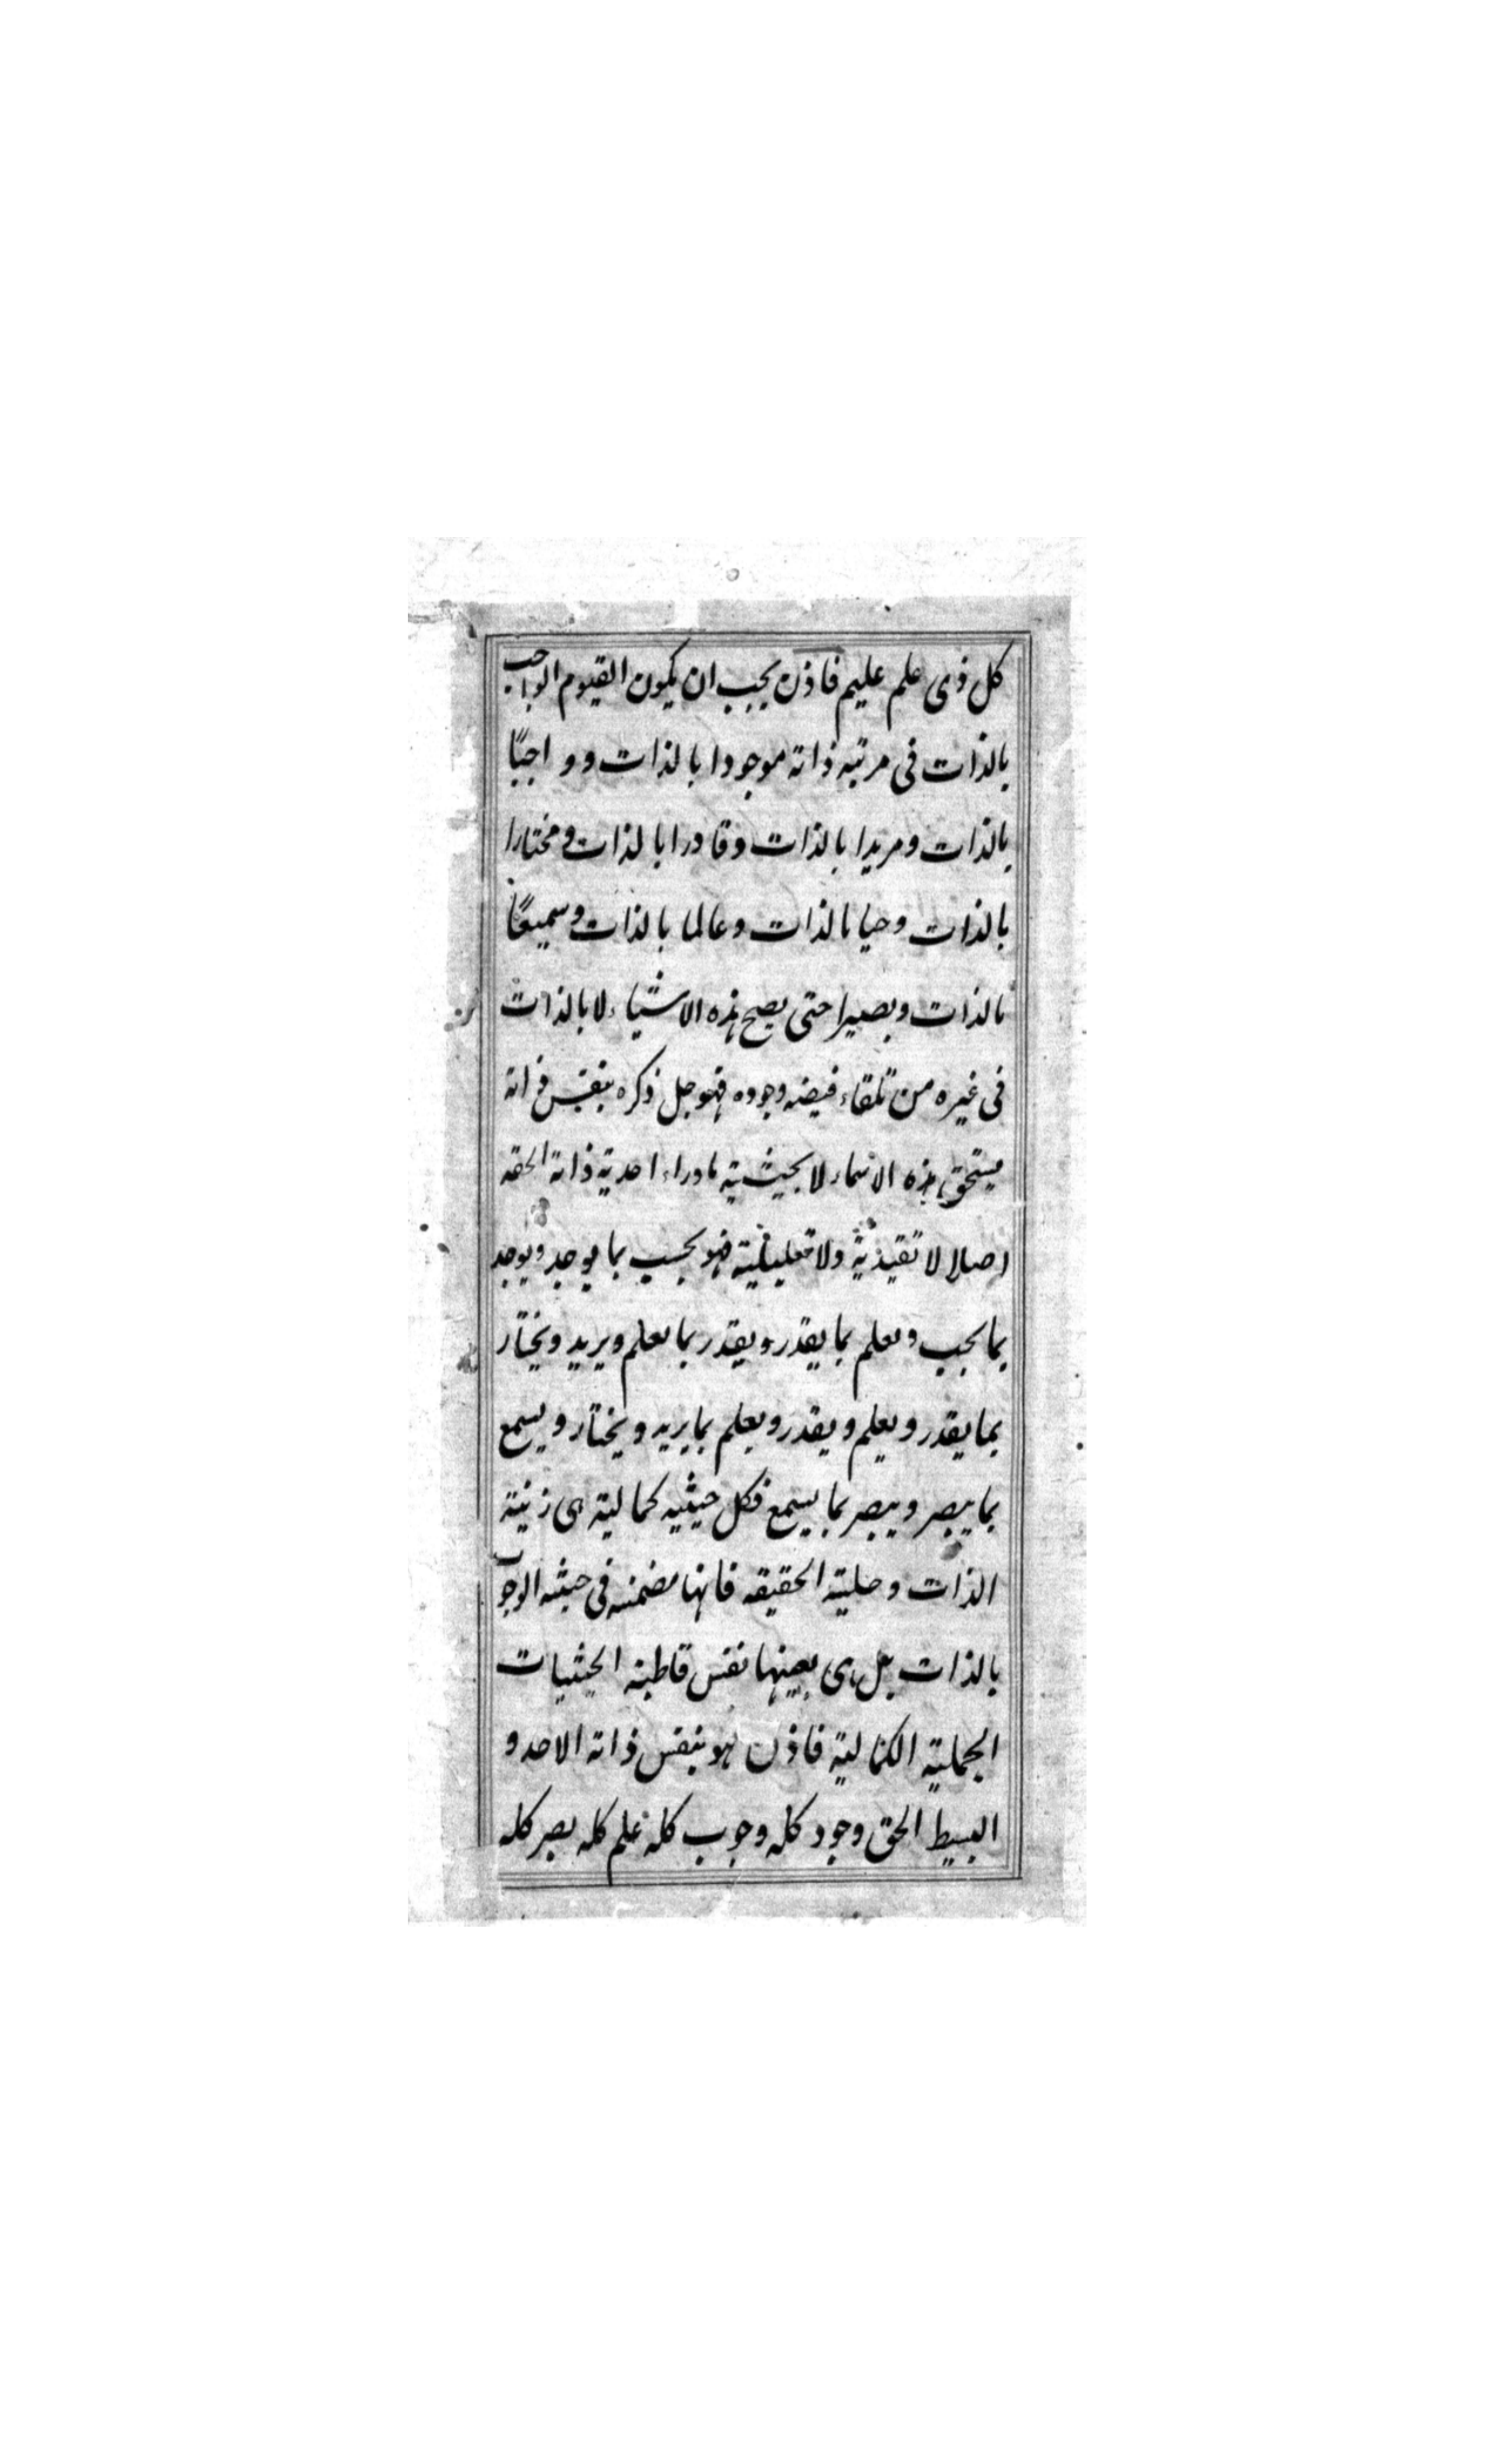 كل ذى علم عليم فاذن يجب ان يكون القيوم الواجب
بالذات فى مرتبه ذاته موجودا بالذات وواجبًا
بالذات ومريدا بالذات وقادرا بالذات ومختارا
بالذات وحيا بالذات وعالما بالذات وسميعًا
بالذات وبصيرا حتى يصح هذه الاشياء لا بالذات
فى غيره من تلقاء فيضه وجوده فهو جل ذكره بنفس ذاته
يستحق هذه الاسماء لا بحيثية ماوراء احدية ذاته الحقه
اصلا لا تقييدية ولا تعليلية فهو يجب بما يوجد ويوجد
بما يجب ويعلم بما يقدر ويقدر بما يعلم ويريد ويختار
بما يقدر ويعلم ويقدر ويعلم بما يريد ويختار ويسمع
بما يبصر ويبصر بما يسمع فكل حيثيه كمالية هى زينة
الذات وحلية الحقيقه فانها مضمنه فى حيثية الوجوب
بالذات بل هى بعينها نفس قاطبة الحيثيات
الجملية الكمالية فاذن هو بنفس ذاته الاحد و
البسيط الحق وجود كله وجوب كله علم كله بصر كله